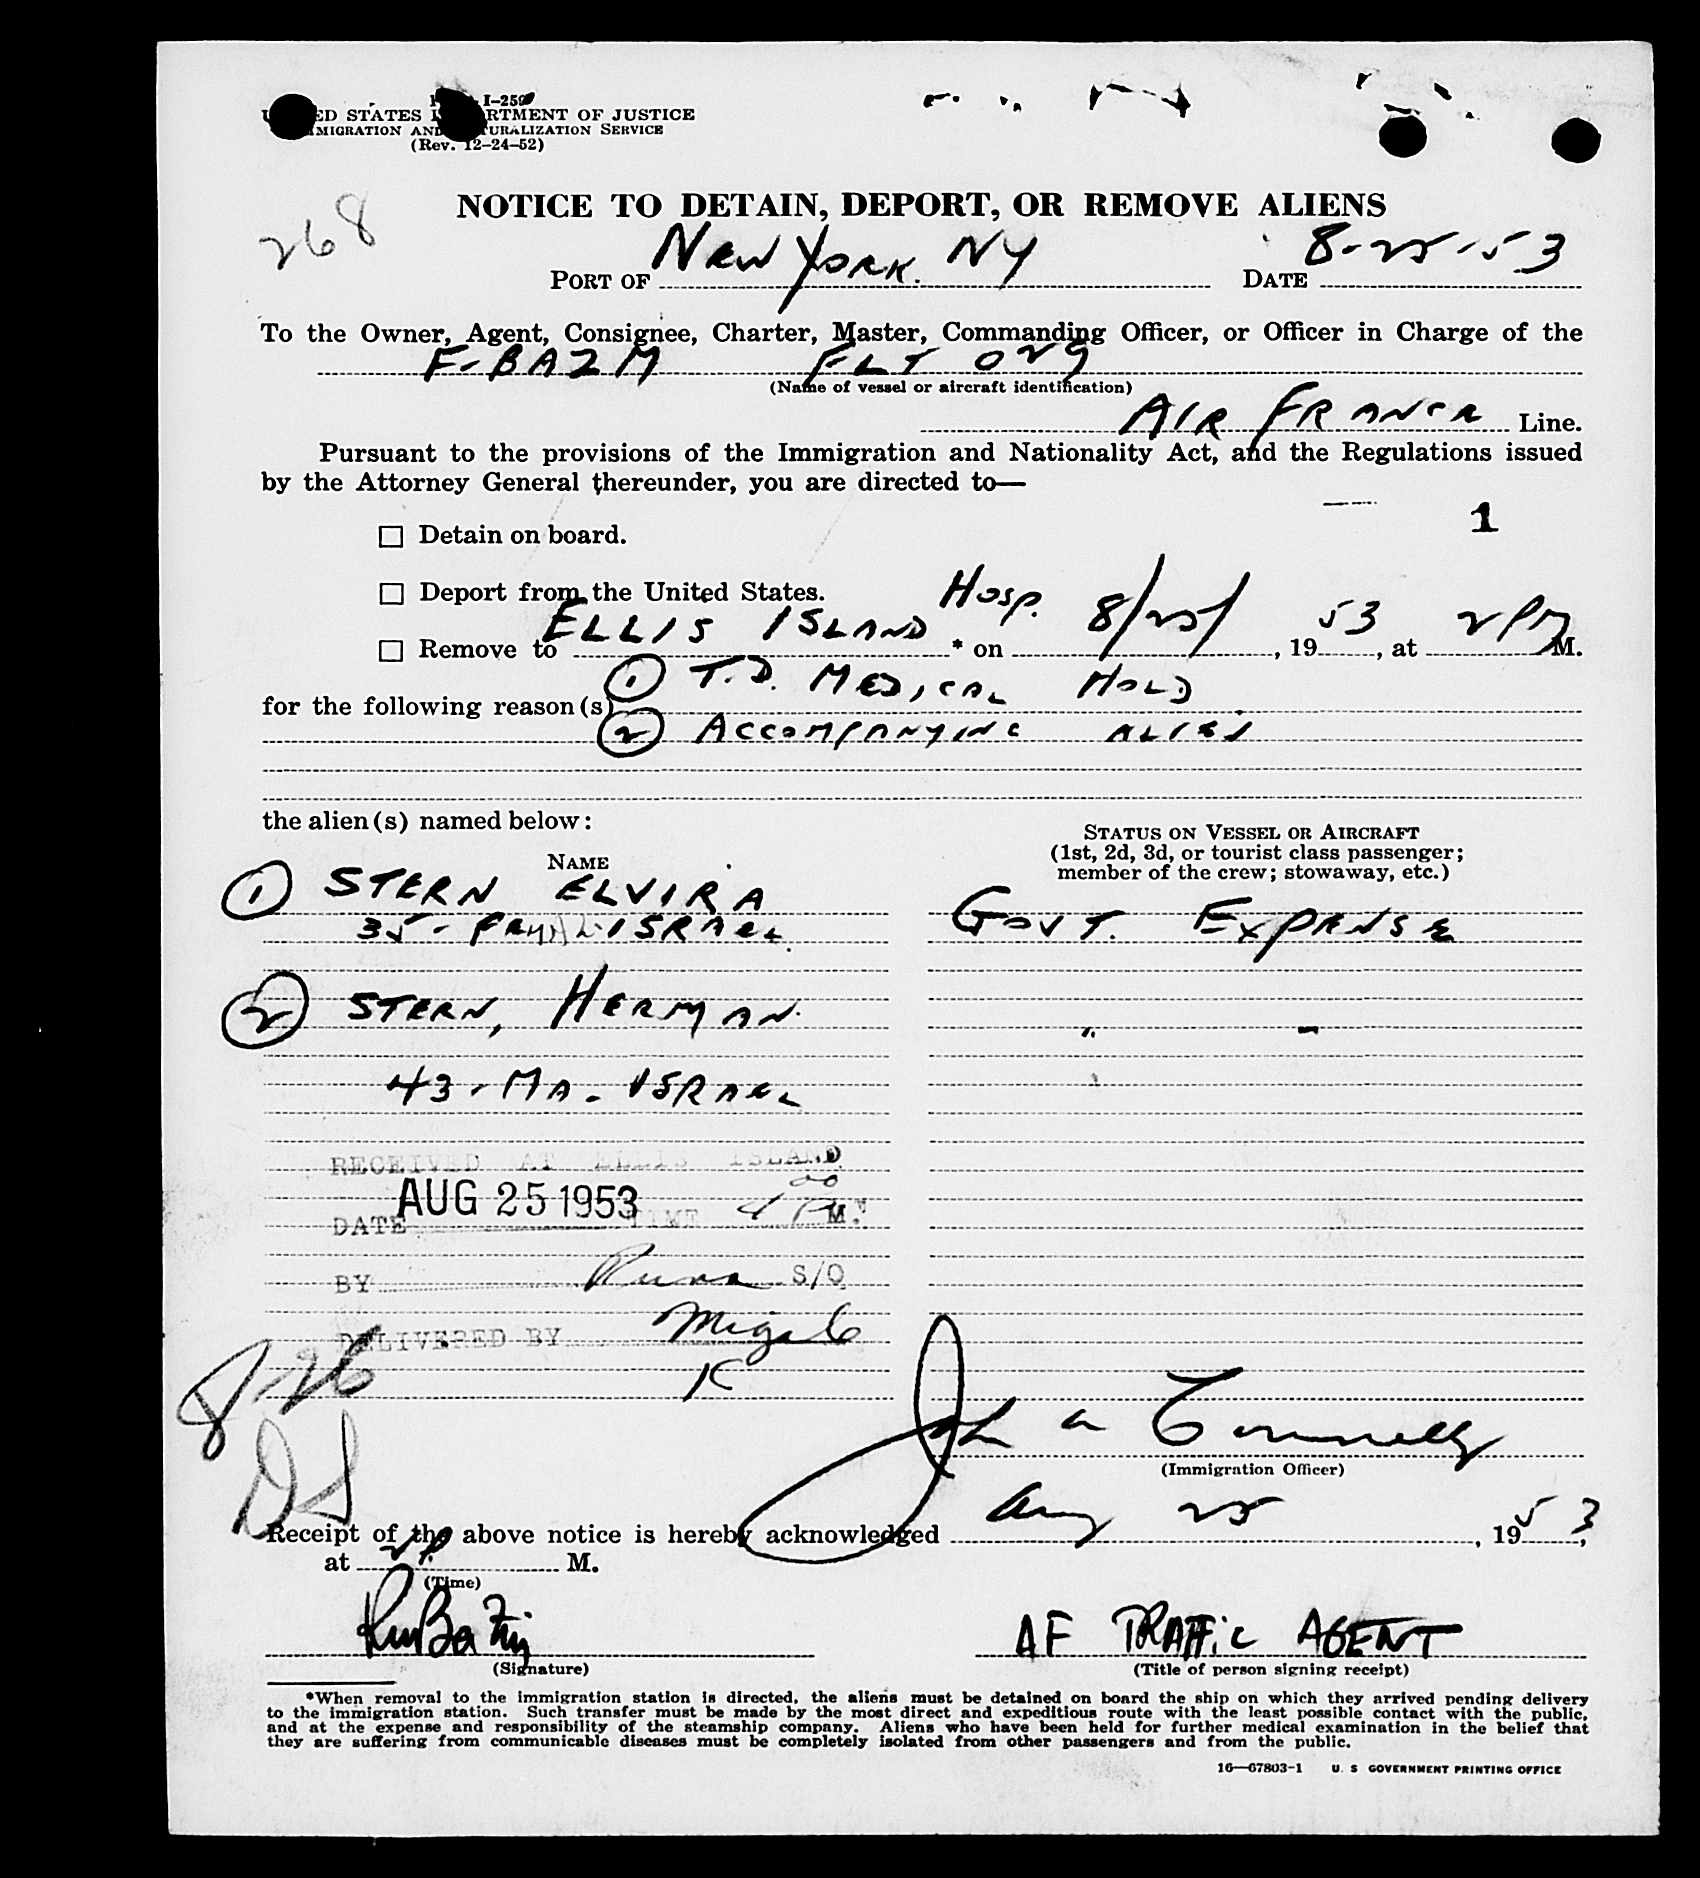 I-259
STATES DEPARTMENT OF JUSTICE
IMMIGRATION AND NATURALIZATION SERVICE
(Rev. 12-24-52)
268
NOTICE TO DETAIN, DEPORT, OR REMOVE ALIENS
PORT OF New York. NY DATE 8-25-53
To the Owner, Agent, Consignee, Charter, Master, Commanding Officer, or Officer in Charge of the
F-BAZM FLT 029
(Name of vessel or aircraft identification)
AIR FRANCE Line.
Pursuant to the provisions of the Immigration and Nationality Act, and the Regulations issued
by the Attorney General thereunder, you are directed to—
1
☐ Detain on board.
☐ Deport from the United States.
☐ Remove to ELLIS ISLAND Hosp. * on 8/25/, 1953, at 2 PM M.
for the following reason(s) ① T.D. MEDICAL HOLD
② ACCOMPANYING ALIEN
the alien(s) named below:
NAME
STATUS ON VESSEL OR AIRCRAFT
(1st, 2d, 3d, or tourist class passenger;
member of the crew; stowaway, etc.)
① STERN ELVIRA
35 - FEMALE ISRAEL GOVT. EXPENSE
② STERN, HERMAN " "
43 - MA - ISRAEL
RECEIVED AT ELLIS ISLAND
DATE AUG 25 1953 TIME 4 00 P M.
BY S/O
DELIVERED BY
K
8-26
DS
John A Connelly
(Immigration Officer)
Receipt of the above notice is hereby acknowledged Aug 25, 1953,
at 2 P. M.
(Time)
AF TRAFFIC AGENT
(Signature) (Title of person signing receipt)
*When removal to the immigration station is directed, the aliens must be detained on board the ship on which they arrived pending delivery
to the immigration station. Such transfer must be made by the most direct and expeditious route with the least possible contact with the public,
and at the expense and responsibility of the steamship company. Aliens who have been held for further medical examination in the belief that
they are suffering from communicable diseases must be completely isolated from other passengers and from the public.
16—67803-1 U. S GOVERNMENT PRINTING OFFICE